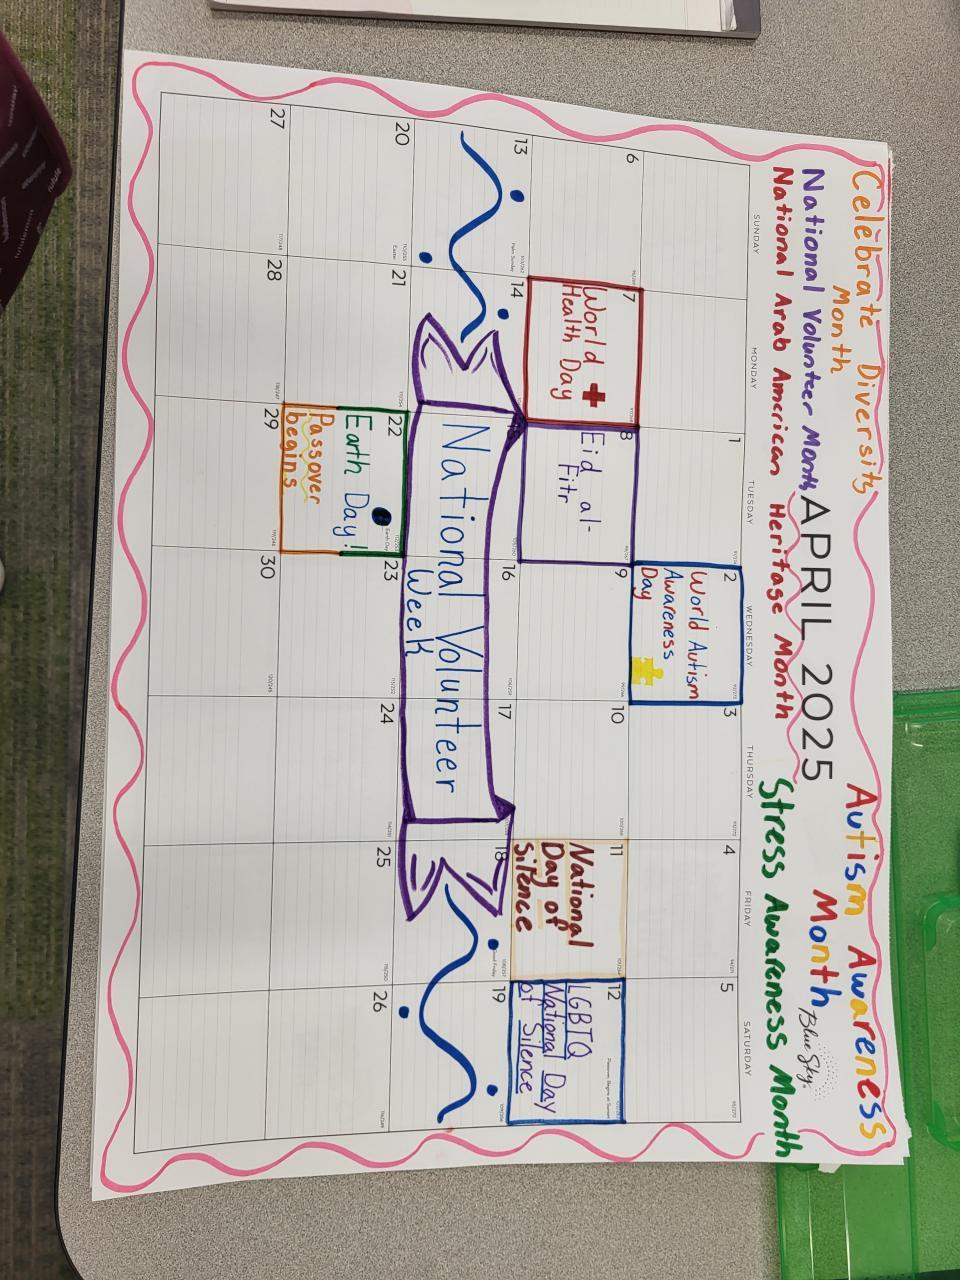 Celebrate Diversity
Month
Autism Awareness
Month
National Volunteer Month
APRIL 2025
Blue Sky.
National Arab American Heritage Month
Stress Awareness Month
SUNDAY MONDAY TUESDAY WEDNESDAY THURSDAY FRIDAY SATURDAY
1 2 3 4 5
World Autism
Awareness
Day
6 7 8 9 10 11 12
World
Health Day
Eid al-
Fitr
National
Day of
Silence
Passover Begins at Sunset
LGBTQ
National Day
of Silence
13 14 16 17 18 19
Palm Sunday
Good Friday
National Volunteer
Week
20 21 22 23 24 25 26
Easter
Earth Day
Earth Day!
Passover
begins
27 28 29 30